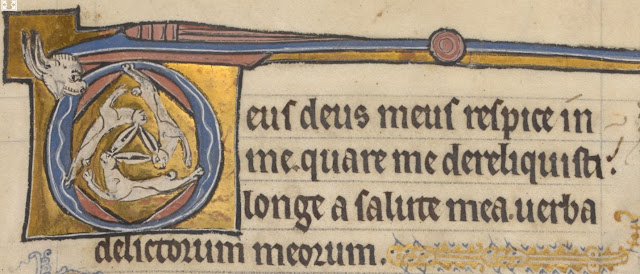 Deus deus meus respice in
me. quare me dereliquisti:
longe a salute mea. uerba
delictorum meorum.